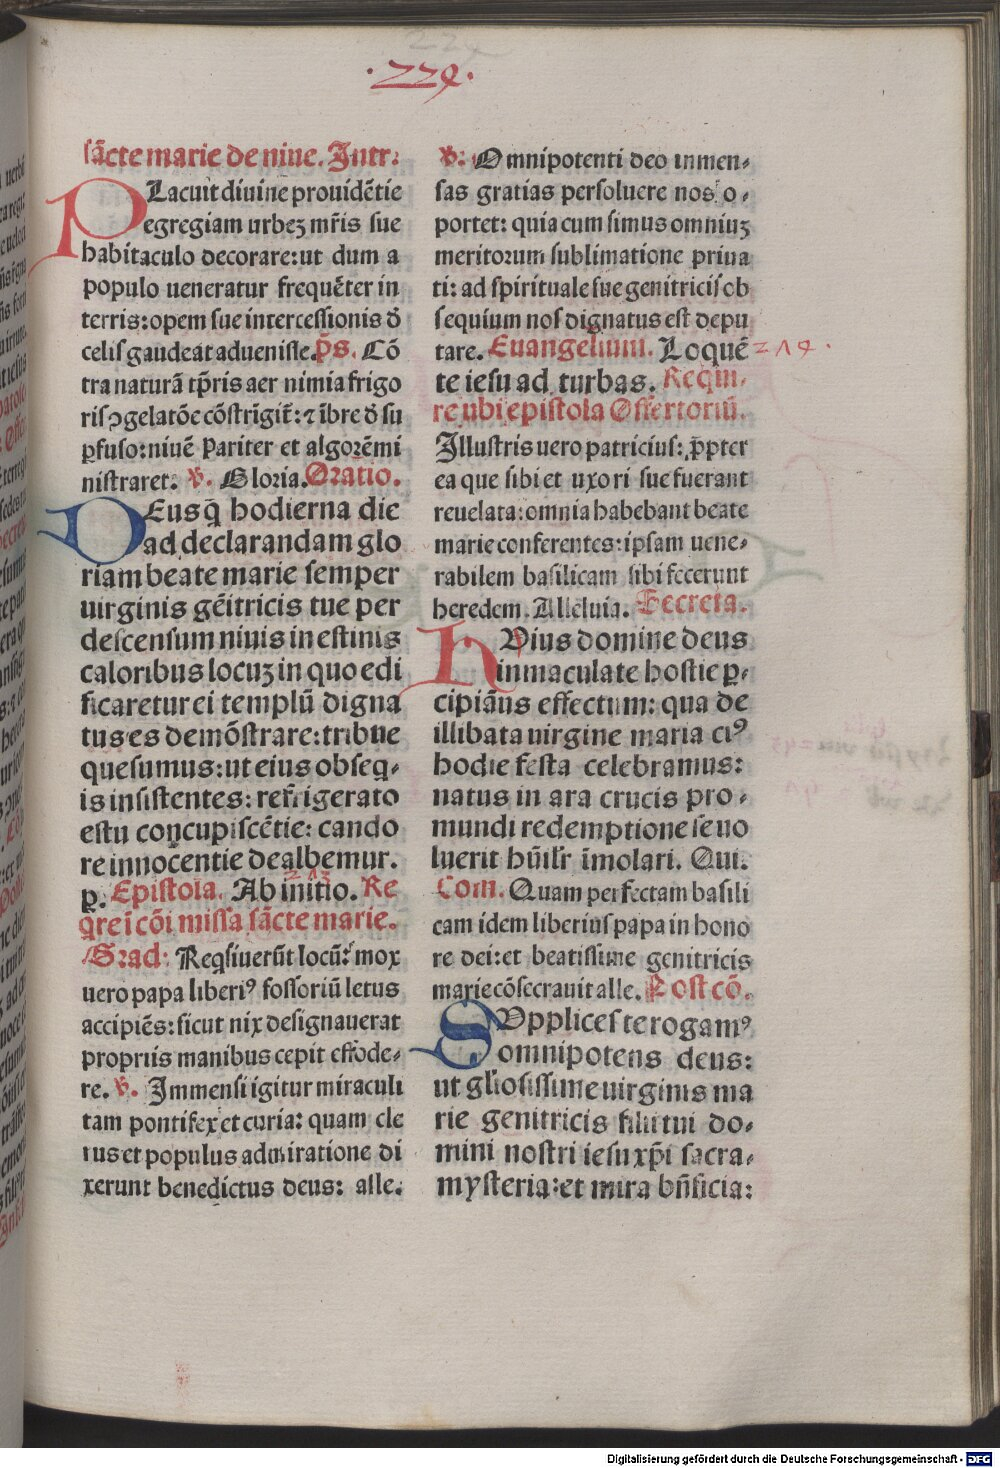 .224.
sācte marie de niue. Intr.
PLacuit diuine prouidētie
egregiam urbeʒ mr̄is sue
habitaculo decorare:ut dum a
populo ueneratur frequēter in
terris:opem sue intercessionis d̄
celis gaudeat aduenisse. p̄s. Cō
tra naturā tp̄ris aer nimia frigo
ris ꝯgelatōe cōstrīgit̄: ⁊ ībre d̄ su
ꝑfuso:niuē pariter et algorē mi
nistraret. v̄. Gloria. Oratio.
DEus q̄ hodierna die
ad declarandam glo
riam beate marie semper
uirginis gēitricis tue per
descensum niuis in estinis
caloribus locuʒ in quo edi
ficaretur ei templū digna
tus es demōstrare:tribue
quesumus:ut eius obseq̄-
is insistentes: refrigerato
estu concupiscētie: cando
re innocentie dealbemur.
p. Epistola. Ab initio. 213 Re
q̄re ī cōi missa sācte marie.
Grad: Reqsiuerūt locū: mox
uero papa liberiꝰ fossoriū letus
accipiēs: sicut nix designauerat
propriis manibus cepit effode-
re. v̄. Immensi igitur miraculi
tam pontifex et curia: quam cle
rus et populus admiratione di
xerunt benedictus deus: alle.
v̄. Omnipotenti deo inmen-
sas gratias persoluere nos o-
portet: quia cum simus omniuʒ
meritorum sublimatione priua
ti: ad spirituale sue genitricis ob
sequium nos dignatus est depu
tare. Euangelium. Loquē 214.
te iesu ad turbas. Requi-
re ubi epistola Offertoriū.
Illustris uero patricius: ꝓpter
ea que sibi et uxori sue fuerant
reuelata: omnia habebant beate
marie conferentes: ipsam uene-
rabilem basilicam sibi fecerunt
heredem. Alleluia. Secreta.
HVius domine deus
inmaculate hostie ꝑ-
cipiāus effectum: qua de
illibata uirgine maria ciꝰ
hodie festa celebramus:
natus in ara crucis pro-
mundi redemptione se uo
luerit hūilr̄ īmolari. Qui.
Com. Quam perfectam basili
cam idem liberius papa in hono
re dei:et beatissime genitricis
marie cōsecrauit alle. Post cō.
SVpplices te rogamꝰ
omnipotens deus:
ut gl̄iosissime uirginis ma
rie genitricis filii tui do-
mini nostri iesu xp̄i sacra-
mysteria:et mira bn̄ficia:
Digitalisierung gefördert durch die Deutsche Forschungsgemeinschaft - DFG